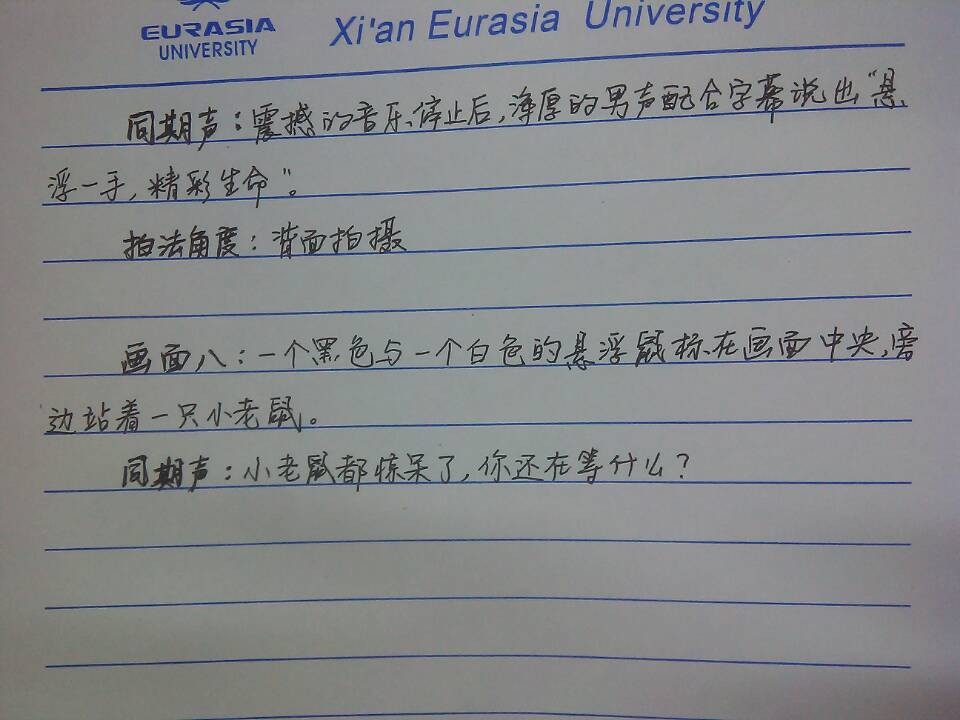 EURASIA
UNIVERSITY
Xi'an Eurasia University
同期声：震撼的音乐停止后，浑厚的男声配合字幕说出“悬
浮一手，精彩生命”。
拍法角度：背面拍摄
画面八：一个黑色与一个白色的悬浮鼠标在画面中央，旁
边站着一只小老鼠。
同期声：小老鼠都惊呆了，你还在等什么？